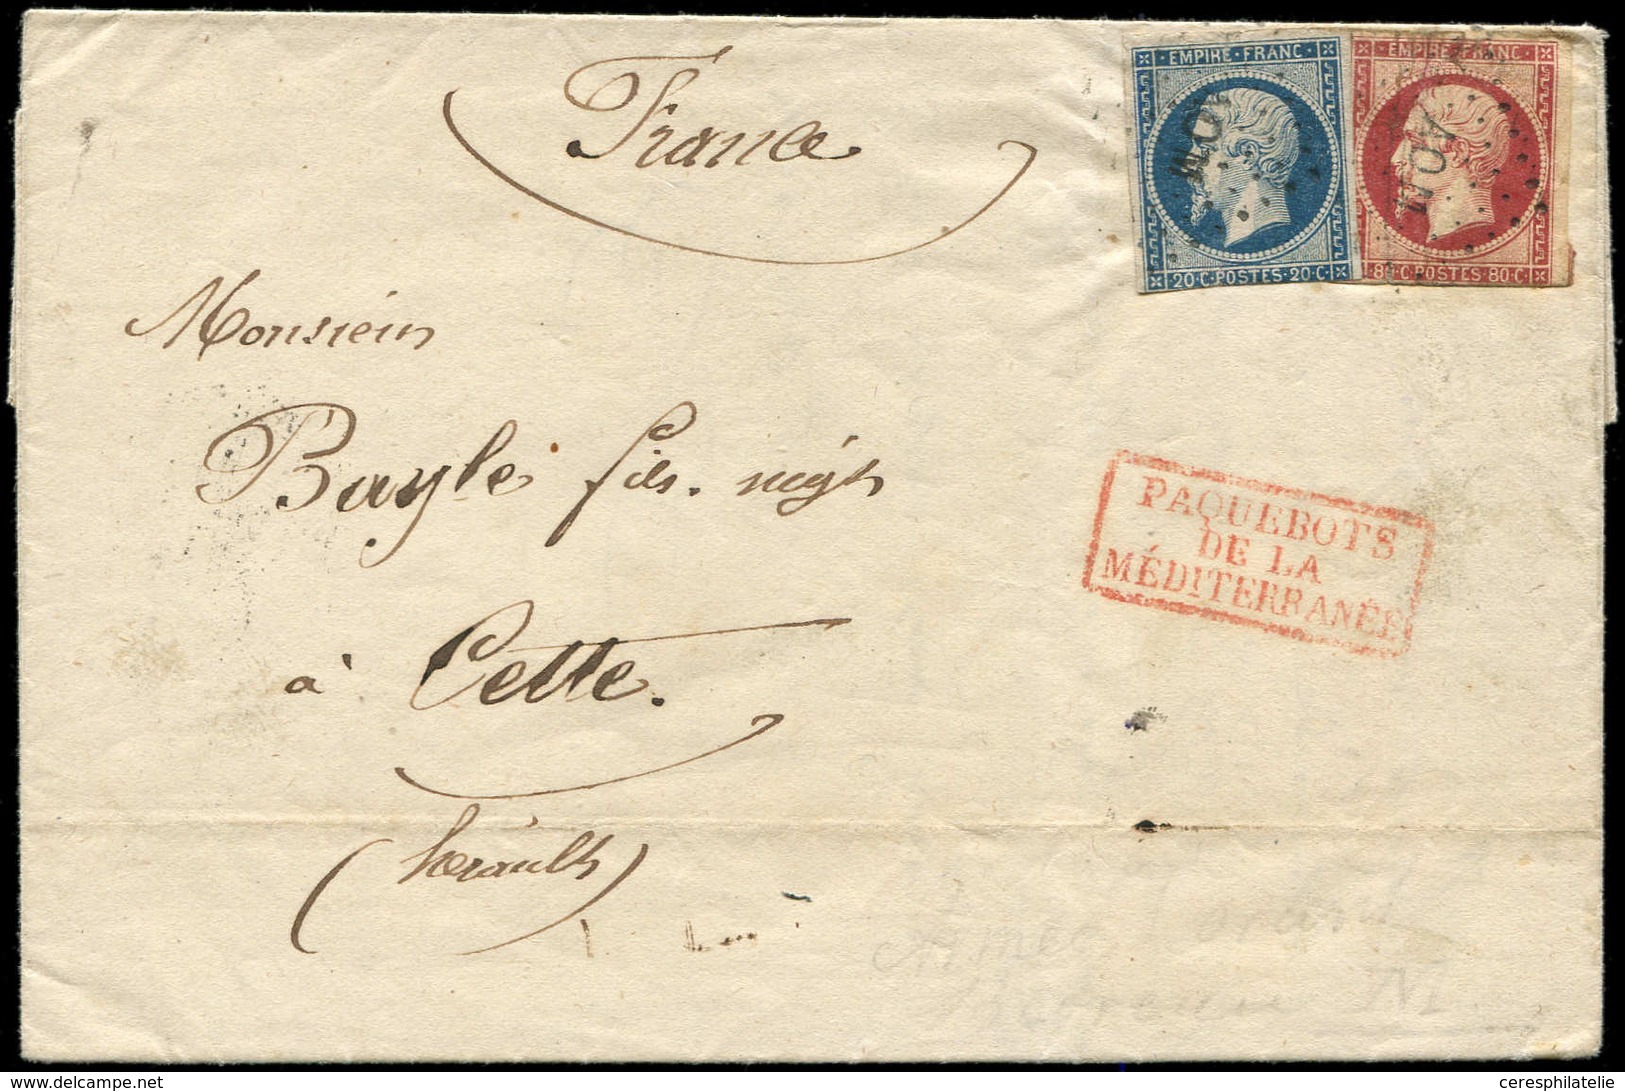 France
EMPIRE · FRANC
20 · C · POSTES · 20 · C
EMPIRE · FRANC
80 · C · POSTES · 80 · C
AOM
Monsieur
Bayle fils. négt
PAQUEBOTS
DE LA
MÉDITERRANÉE
à Cette.
(hérault)
www.delcampe.net
ceresphilatelie